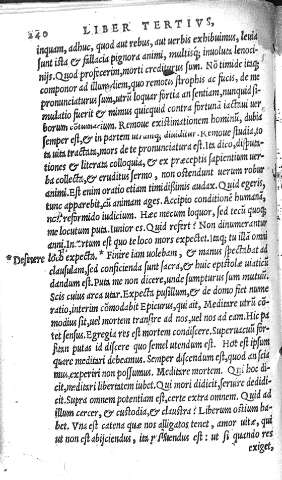 240 LIBER TERTIVS,
inquam, adhuc, quod aut rebus, aut uerbis exhibuimus, leuia
sunt ista & fallacia pignora animi, multisq; inuoluta lenoci-
nijs. Quid profecerim, morti crediturus sum. Nō timide itaq;
componor ad illum diem, quo remotis strophis ac fucis, de me
pronunciaturus sum, utrū loquar fortia an sentiam, nunquid si-
mulatio fuerit & mimus quicquid contra fortunā iactaui uer
borum contumacium. Remoue existimationem hominū, dubia
semper est, & in partem utranq; diuiditur. Remoue studia, to
ta uita tractata, mors de te pronunciatura est. Ita dico, disputa-
tiones & literata colloquia, & ex præceptis sapientium uer-
ba collecta, & eruditus sermo, non ostendunt uerum robur
animi. Est enim oratio etiam timidissimis audax. Quid egeris,
tunc apparebit, cū animam ages. Accipio conditionē humanā,
non reformido iudicium. Hæc mecum loquor, sed tecū quoq;
me locutum puta. Iunior es. Quid refert? Non dinumerantur
anni. Incertum est quo te loco mors expectet. Itaq; tu illā omni
* Desinere loco expecta. * Finire iam uolebam, & manus spectabat ad
clausulam, sed conficienda sunt sacra, & huic epistolæ uiaticū
dandum est. Puta me non dicere, unde sumpturus sum mutuū.
Scis cuius arca utar. Expecta pusillum, & de domo fiet nume
ratio, interim cōmodabit Epicurus, qui ait, Meditare utrū cō-
modius sit, uel mortem transire ad nos, uel nos ad eam. Hic pa
tet sensus. Egregia res est mortem condiscere. Superuacuū for-
sitan putas id discere quo semel utendum est. Hoc est ipsum
quare meditari debeamus. Semper discendum est, quod an scia
mus, experiri non possumus. Meditare mortem. Qui hoc di-
cit, meditari libertatem iubet. Qui mori didicit, seruire dedidi-
cit. Supra omnem potentiam est, certe extra omnem. Quid ad
illum carcer, & custodia, & claustra? Liberum ostium ha-
bet. Vna est catena quæ nos alligatos tenet, amor uitæ, qui
ut non est abijciendus, ita minuendus est: ut si quando res
exiget,